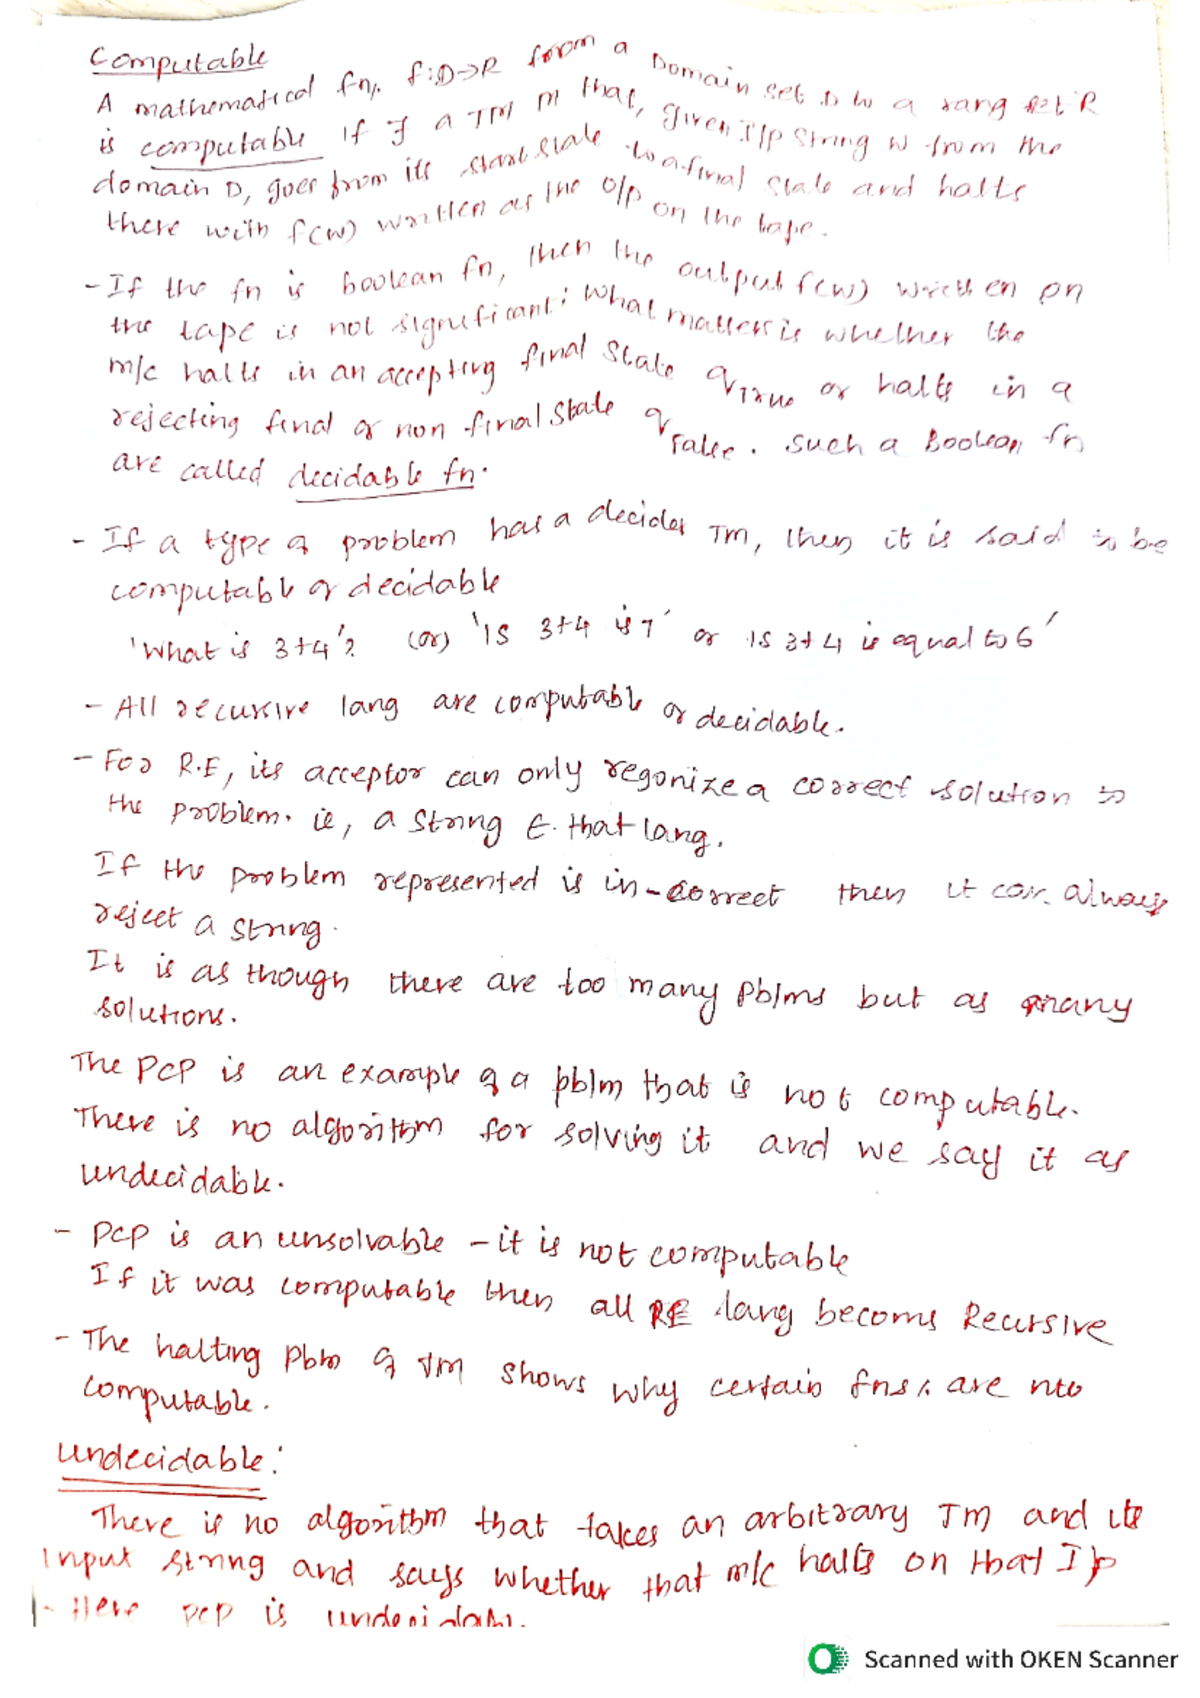 Computable
A mathematical fn, f:D→R from a Domain set D to a rang set R
is computable if ∃ a TM M that, given I/p String w from the
domain D, goes from its start state to a final state and halts
there with f(w) written as the o/p on the tape.
- If the fn is boolean fn, then the output f(w) written on
the tape is not significant; What matters is whether the
m/c halts in an accepting final state qTrue or halts in a
rejecting final or non final state qFalse. Such a Boolean fn
are called decidable fn.
- If a type of problem has a decider TM, then it is said to be
computable or decidable
'What is 3+4'? (or) 'IS 3+4 is 7' or IS 3+4 is equal to 6'
- All recursive lang are computable or decidable.
- For R.E, its acceptor can only regonize a correct solution to
the problem. ie, a string ∈ that lang.
If the problem represented is in-correct then it can always
reject a string.
It is as though there are too many pblms but as many
solutions.
The PCP is an example of a pblm that is not computable.
There is no algorithm for solving it and we say it as
undecidable.
- PCP is an unsolvable - it is not computable
If it was computable then all RE lang becoms Recursive
- The halting Pblm of TM shows why certain fns, are nto
computable.
Undecidable:
There is no algorithm that takes an arbitrary TM and its
Input string and says whether that m/c halts on that I/p
- Here PCP is undecidable.
Scanned with OKEN Scanner